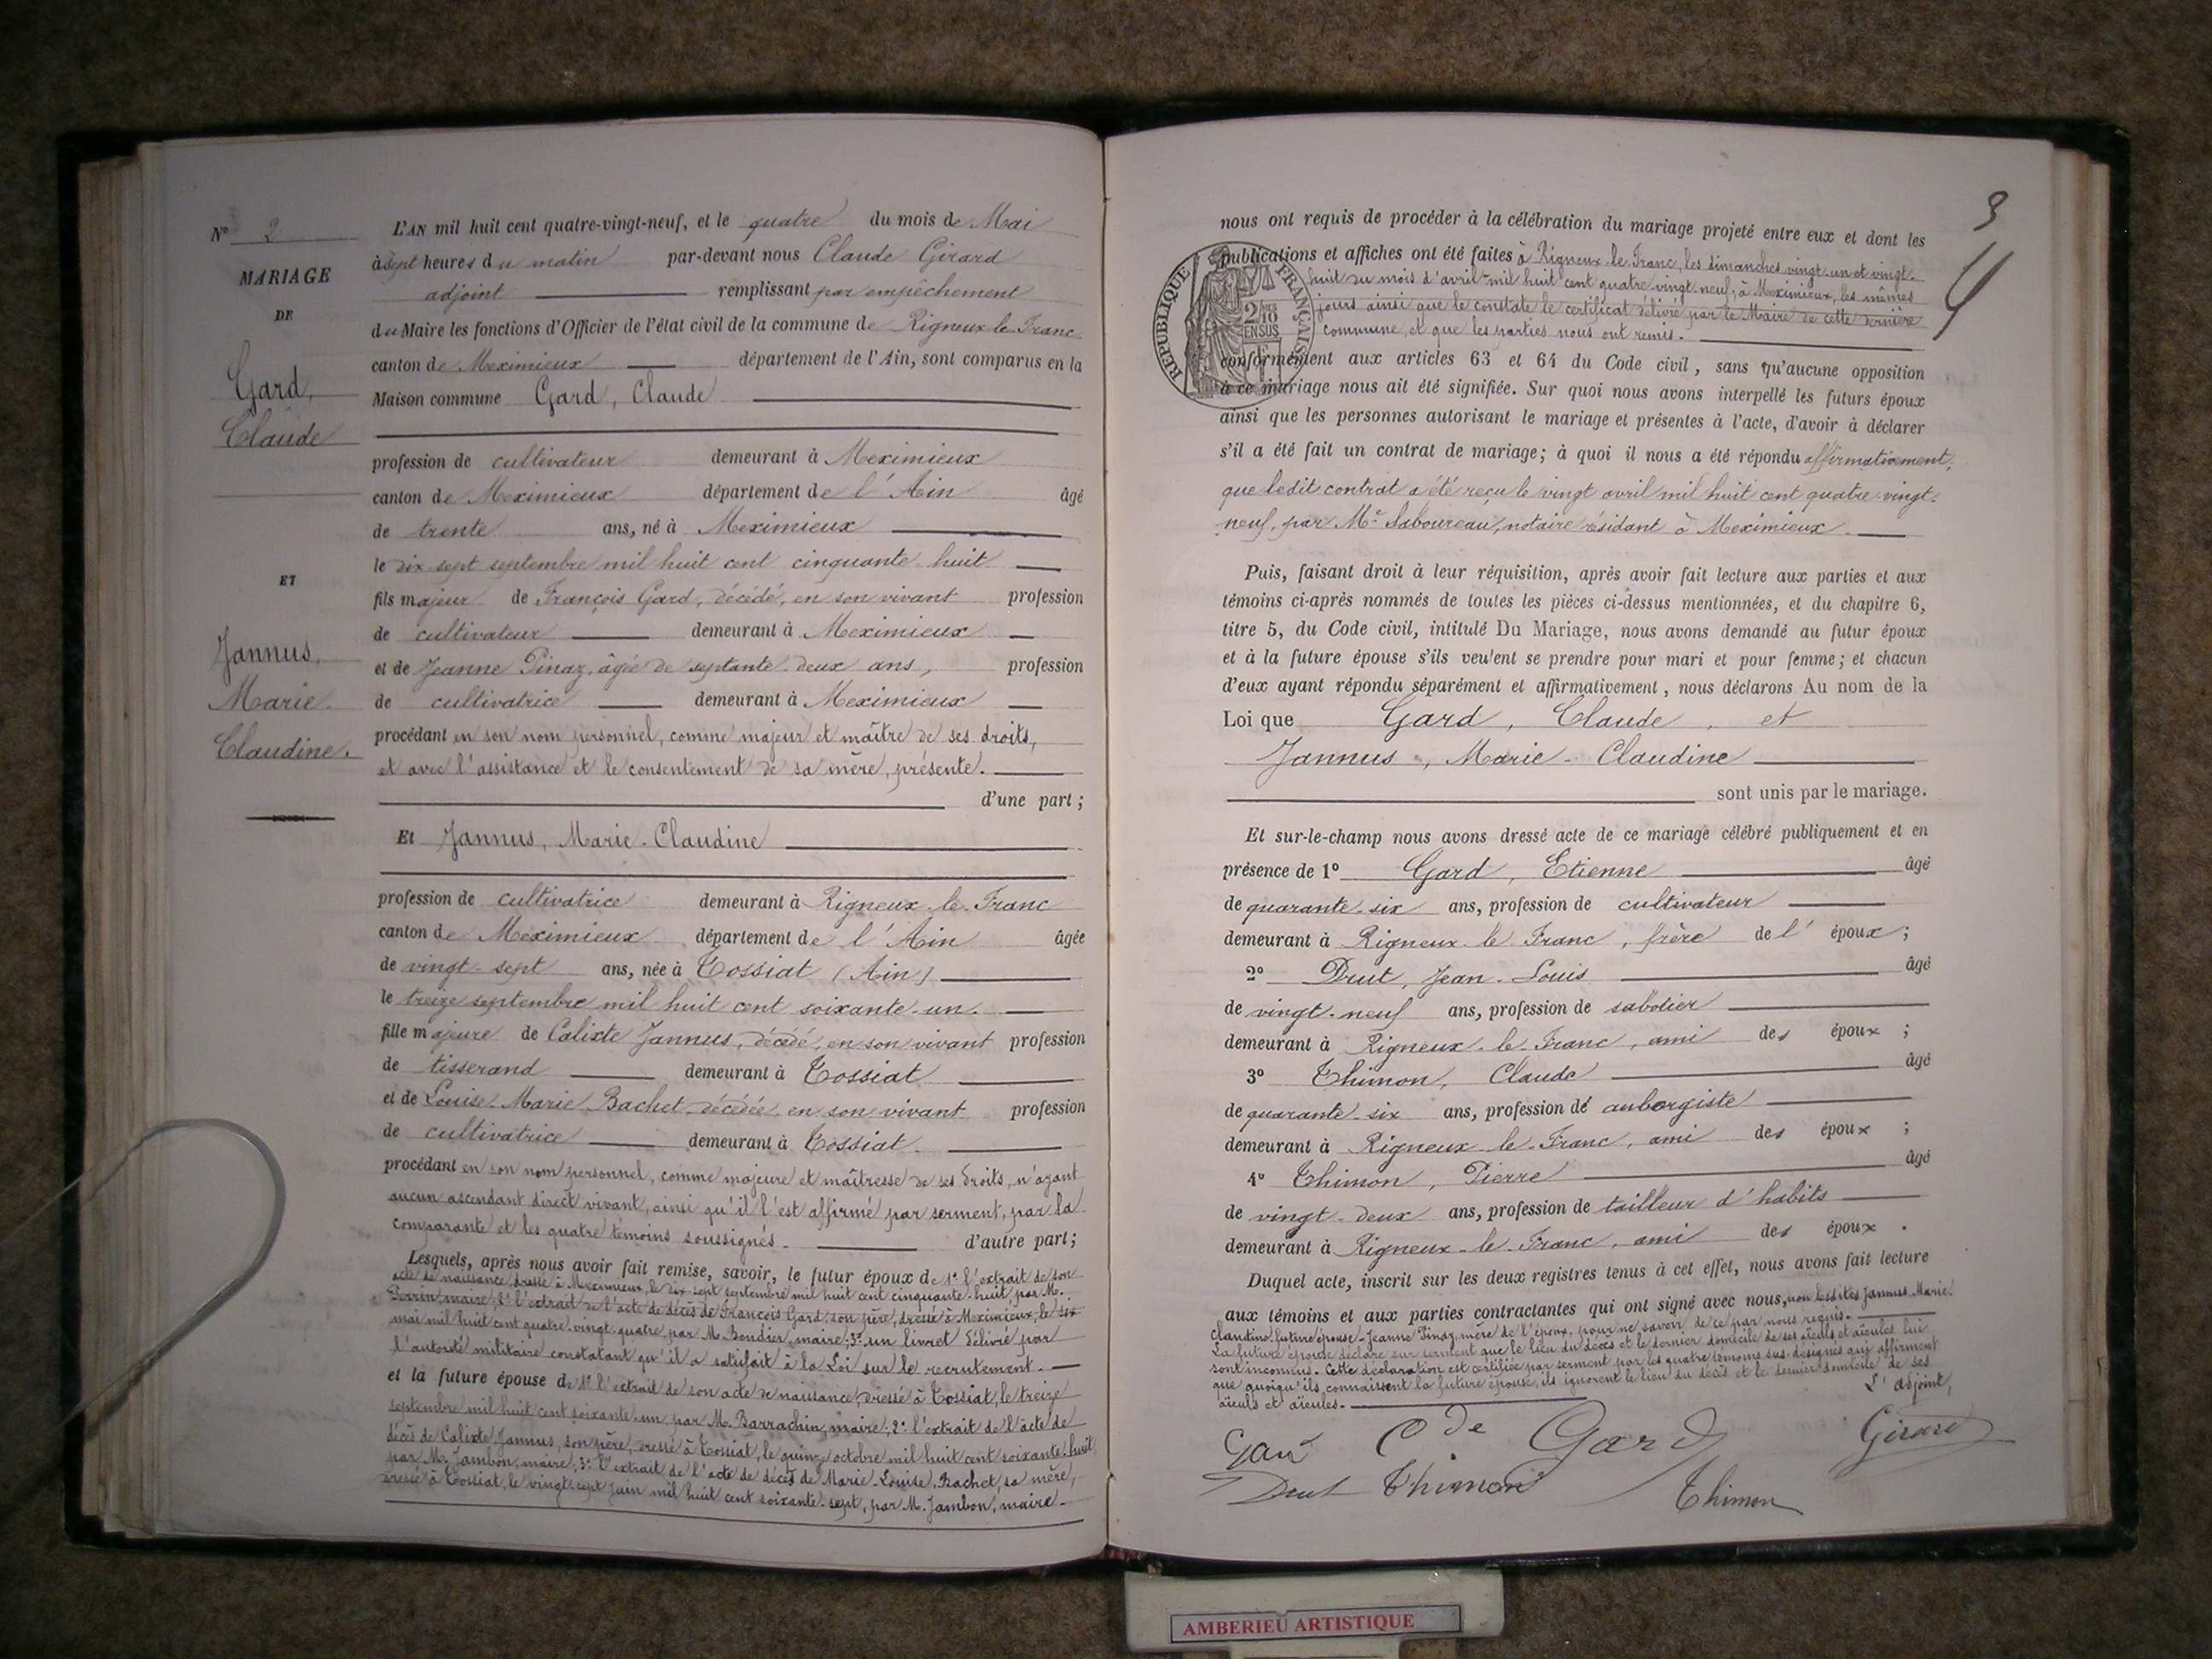 N° 2
MARIAGE
DE
Gard,
Claude
ET
Jannus,
Marie-
Claudine.
L'AN mil huit cent quatre-vingt-neuf, et le quatre du mois de Mai
à sept heures du matin par-devant nous Claude Girard
adjoint remplissant par empêchement
du Maire les fonctions d'Officier de l'état civil de la commune de Rigneux-le-Franc
canton de Meximieux département de l'Ain, sont comparus en la
Maison commune Gard, Claude
profession de cultivateur demeurant à Meximieux
canton de Meximieux département de l'Ain âgé
de trente ans, né à Meximieux
le dix sept septembre mil huit cent cinquante-huit
fils majeur de François Gard, décédé, en son vivant profession
de cultivateur demeurant à Meximieux
et de Jeanne Pinaz, âgée de septante-deux ans, profession
de cultivatrice demeurant à Meximieux
procédant en son nom personnel, comme majeur et maître de ses droits,
et avec l'assistance et le consentement de sa mère, présente.
d'une part;
Et Jannus, Marie-Claudine
profession de cultivatrice demeurant à Rigneux-le-Franc
canton de Meximieux département de l'Ain âgée
de vingt-sept ans, née à Tossiat (Ain)
le treize septembre mil huit cent soixante-un.
fille majeure de Calixte Jannus, décédé, en son vivant profession
de tisserand demeurant à Tossiat
et de Louise-Marie Bachet, décédée, en son vivant profession
de cultivatrice demeurant à Tossiat.
procédant en son nom personnel, comme majeure et maîtresse de ses droits, n'ayant
aucun ascendant direct vivant, ainsi qu'il l'est affirmé par serment, par la
comparante et les quatre témoins soussignés. d'autre part;
Lesquels, après nous avoir fait remise, savoir, le futur époux de 1° l'extrait de son
acte de naissance, dressé à Meximieux, le dix-sept septembre mil huit cent cinquante-huit, par M.
Perrin, maire; 2° l'extrait de l'acte de décès de François Gard, son père, dressé à Meximieux, le six
mai mil huit cent quatre-vingt-quatre, par M. Bendier, maire; 3° un livret délivré par
l'autorité militaire constatant qu'il a satisfait à la Loi sur le recrutement.
et la future épouse de 1° l'extrait de son acte de naissance, dressé à Tossiat, le treize
septembre mil huit cent soixante-un, par M. Barrachin, maire; 2° l'extrait de l'acte de
décès de Calixte Jannus, son père, dressé à Tossiat, le quinze octobre mil huit cent soixante-huit,
par M. Jambon, maire; 3° l'extrait de l'acte de décès de Marie-Louise Bachet, sa mère,
dressé à Tossiat, le vingt-sept juin mil huit cent soixante-sept, par M. Jambon, maire.
3
nous ont requis de procéder à la célébration du mariage projeté entre eux et dont les
publications et affiches ont été faites à Rigneux-le-Franc, les dimanches vingt-un et vingt-
huit du mois d'avril mil huit cent quatre-vingt-neuf; à Meximieux, les mêmes
jours ainsi que le constate le certificat délivré par le Maire de cette dernière
commune, et que les parties nous ont remis.
REPUBLIQUE FRANÇAISE
2/10
EN SUS
conformément aux articles 63 et 64 du Code civil, sans qu'aucune opposition
à ce mariage nous ait été signifiée. Sur quoi nous avons interpellé les futurs époux
ainsi que les personnes autorisant le mariage et présentes à l'acte, d'avoir à déclarer
s'il a été fait un contrat de mariage; à quoi il nous a été répondu affirmativement,
que ledit contrat a été reçu le vingt avril mil huit cent quatre-vingt-
neuf, par Me Saboureau, notaire résidant à Meximieux.
Puis, faisant droit à leur réquisition, après avoir fait lecture aux parties et aux
témoins ci-après nommés de toutes les pièces ci-dessus mentionnées, et du chapitre 6,
titre 5, du Code civil, intitulé Du Mariage, nous avons demandé au futur époux
et à la future épouse s'ils veulent se prendre pour mari et pour femme; et chacun
d'eux ayant répondu séparément et affirmativement, nous déclarons Au nom de la
Loi que Gard, Claude, et
Jannus, Marie-Claudine
sont unis par le mariage.
Et sur-le-champ nous avons dressé acte de ce mariage célébré publiquement et en
présence de 1° Gard, Etienne âgé
de quarante-six ans, profession de cultivateur
demeurant à Rigneux-le-Franc, frère de l'époux;
2° Drut, Jean-Louis âgé
de vingt-neuf ans, profession de sabotier
demeurant à Rigneux-le-Franc, ami des époux;
3° Thimon, Claude âgé
de quarante-six ans, profession de aubergiste
demeurant à Rigneux-le-Franc, ami des époux;
4° Thimon, Pierre âgé
de vingt-deux ans, profession de tailleur d'habits
demeurant à Rigneux-le-Franc, ami des époux.
Duquel acte, inscrit sur les deux registres tenus à cet effet, nous avons fait lecture
aux témoins et aux parties contractantes qui ont signé avec nous, non lesdites Jannus Marie-
Claudine, future épouse, Jeanne Pinaz, mère de l'époux, pour ne savoir de ce par nous requis.
La future épouse déclare sur serment que le lieu du décès et le dernier domicile de ses aïeuls et aïeules lui
sont inconnus. Cette déclaration est certifiée par serment par les quatre témoins sus-désignés qui affirment
que quoiqu'ils connaissent la future épouse, ils ignorent le lieu du décès et le dernier domicile de ses
aïeuls et aïeules.
L'adjoint,
Gard Cde Gard Girard
Drut Thimon Thimon
AMBERIEU ARTISTIQUE